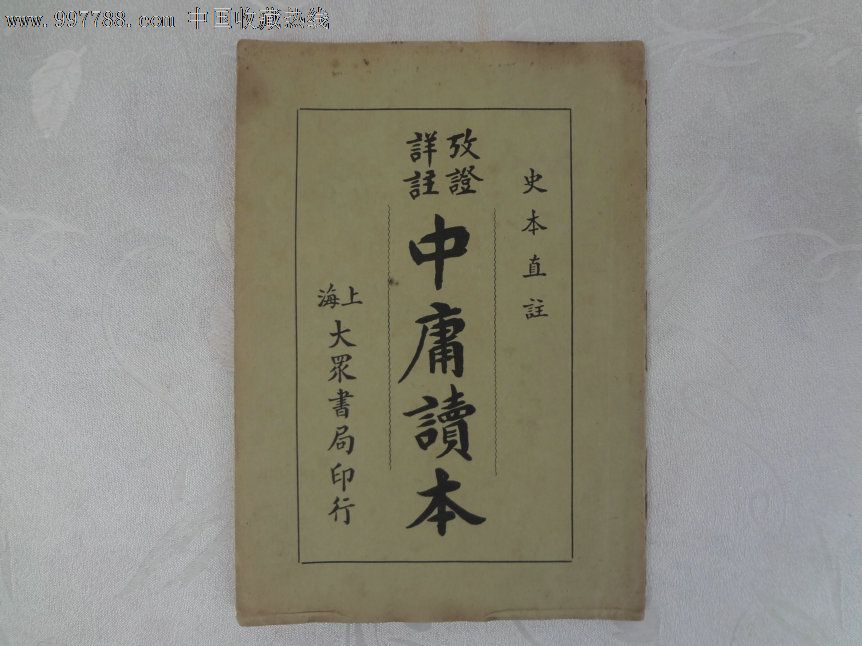 www.997788.com 中国收藏热线
史本直註
攷證
詳註
中庸讀本
上海
大眾書局印行